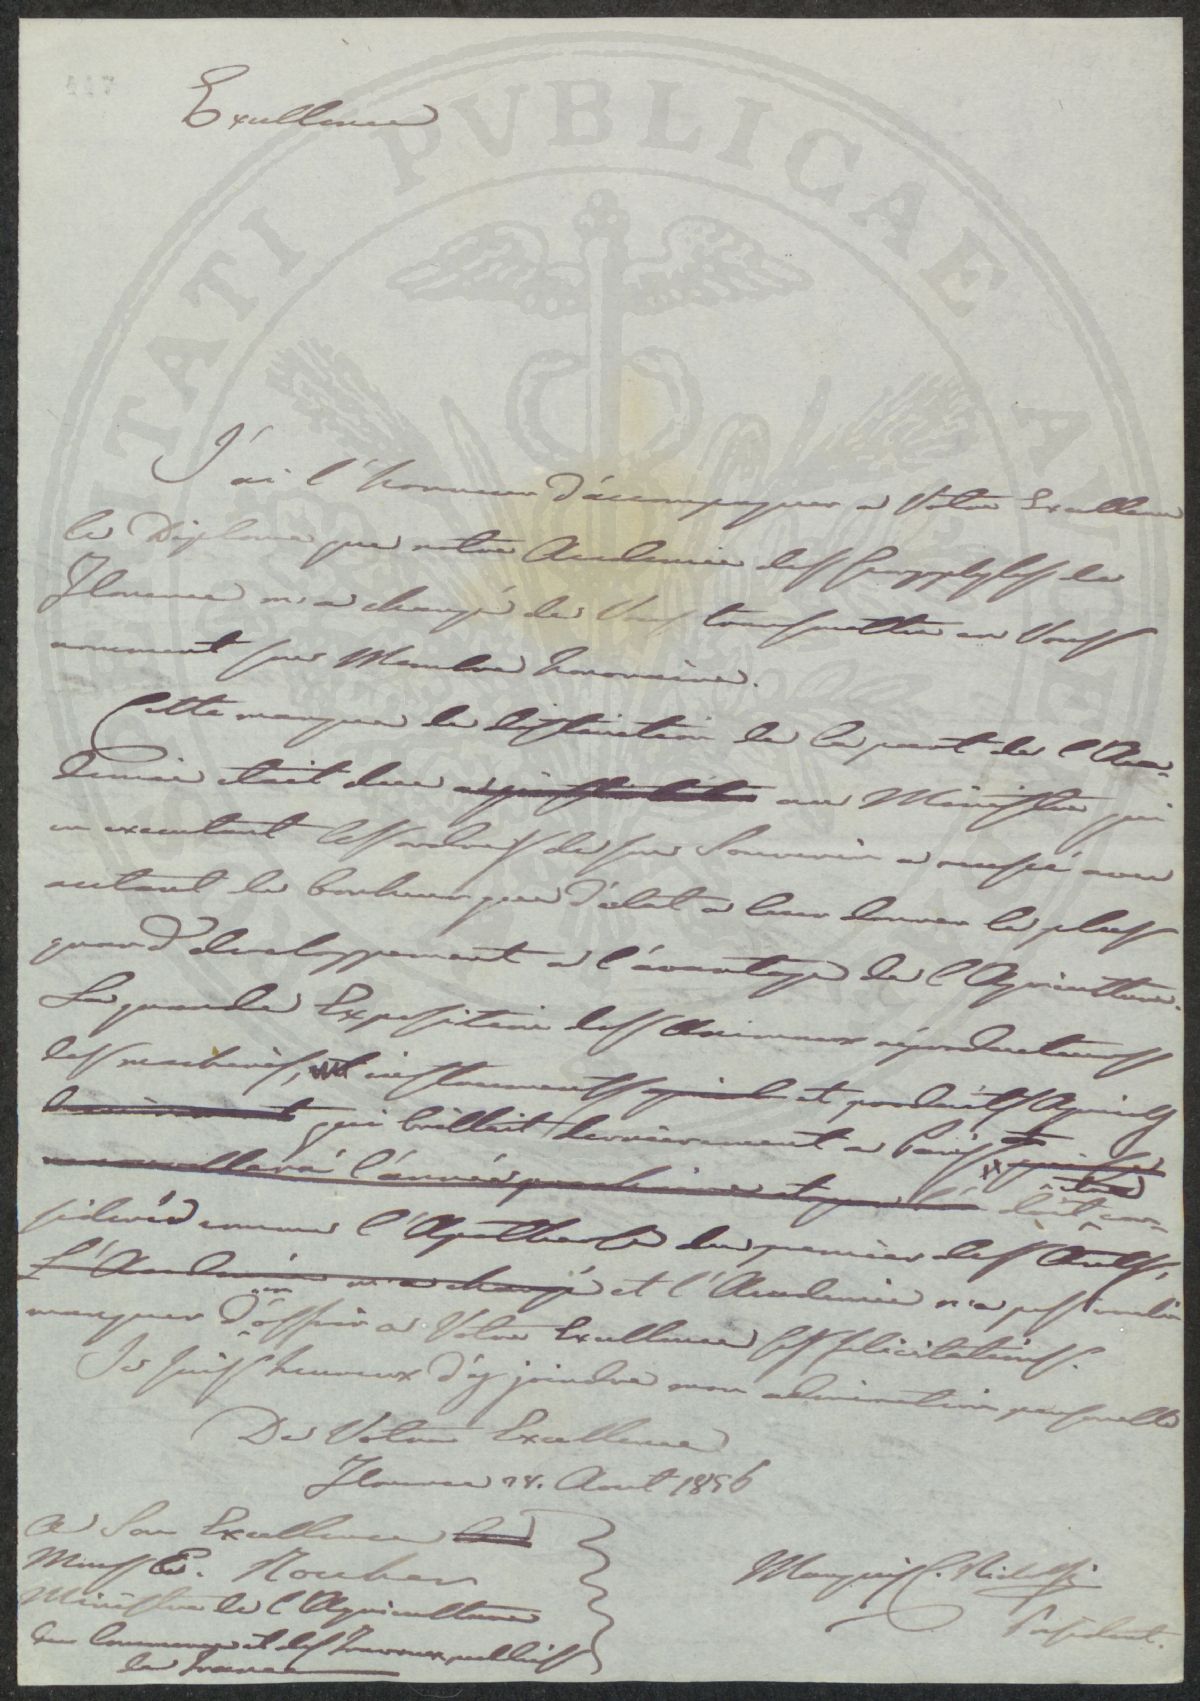 Excellence
J'ai l'honneur d'accompagner a Votre Excellence
le Diplome que notre Academie des Georgophiles de
Florence m'a chargé de Vous transmettre en Vous
nommant son Membre honoraire.
Cette marque de distinction de la part de l'Aca-
demie etait due a au Ministre qui
en executant les ordres de son Souverain a reussi avec
autant de bonheur que d'éclat a leur donner le plus
grand developpement a l'avantage de l'Agriculture.
La grande Exposition des Animaux réproducteurs
des machines, et instruments et produits Agricoles
dernierement qui brillait dernierement a Paris et
renouvellera l'année prochaine doit être con-
siderée comme l'Apotheose du premier des Arts,
L'Academie m'a chargé et l'Academie n'a pas voulu
manquer d'en offrir a Votre Excellence ses felicitations.
Je suis heureux d'y joindre mon admiration personnelle
De Votre Excellence
Florence 28. Aout 1856
A Son Excellence le
Mons E. Rouher
Ministre de l'Agriculture
du Commerce et des Travaux publics
de France
Marquis C. Ridolfi
Président.
PVBLICAE